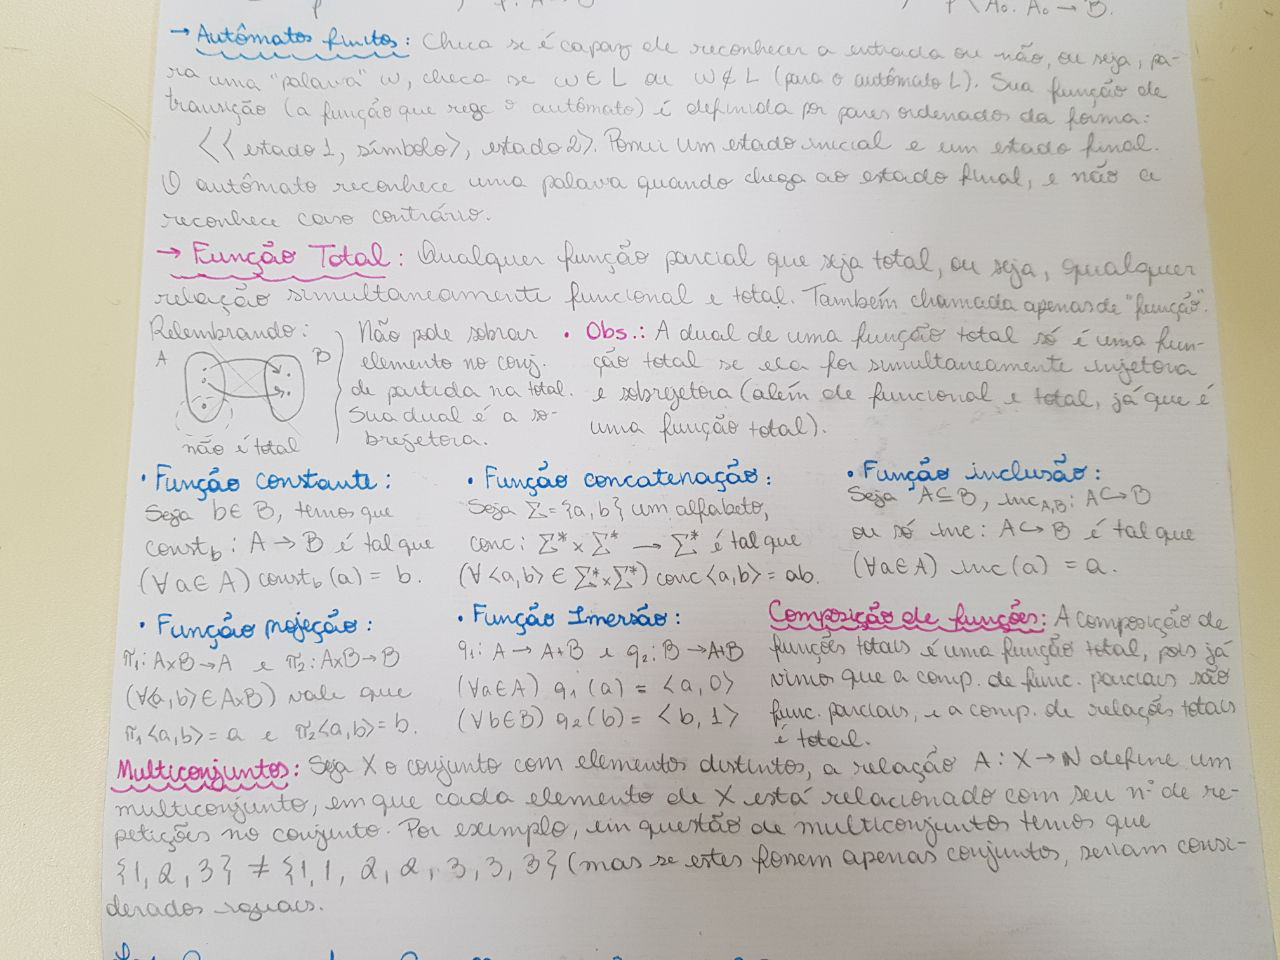 f: A → B
f \ A₀: A₀ → B.
→ Autômatos finitos: Checa se é capaz de reconhecer a entrada ou não, ou seja, pa-
ra uma "palavra" w, checa se w ∈ L ou w ∉ L (para o autômato L). Sua função de
transição (a função que rege o autômato) é definida por pares ordenados da forma:
⟨⟨estado 1, símbolo⟩, estado 2⟩. Possui um estado inicial e um estado final.
O autômato reconhece uma palavra quando chega ao estado final, e não a
reconhece caso contrário.
→ Função Total: Qualquer função parcial que seja total, ou seja, qualquer
relação simultaneamente funcional e total. Também chamada apenas de "função".
Relembrando:
A B
não é total
Não pode sobrar
elemento no conj.
de partida na total.
Sua dual é a so-
brejetora.
• Obs.: A dual de uma função total só é uma fun-
ção total se ela for simultaneamente injetora
e sobrejetora (além de funcional e total, já que é
uma função total).
• Função constante:
Seja b ∈ B, temos que
const_b : A → B é tal que
(∀a ∈ A) const_b (a) = b.
• Função concatenação:
Seja Σ = {a, b} um alfabeto,
conc: Σ* × Σ* → Σ* é tal que
(∀ ⟨a,b⟩ ∈ Σ*×Σ*) conc⟨a,b⟩ = ab.
• Função inclusão:
Seja A ⊆ B, inc_A,B: A ↪ B
ou só inc: A ↪ B é tal que
(∀a ∈ A) inc (a) = a.
• Função projeção:
π₁: A×B → A e π₂: A×B → B
(∀⟨a,b⟩ ∈ A×B) vale que
π₁⟨a,b⟩ = a e π₂⟨a,b⟩ = b.
• Função Imersão:
q₁: A → A+B e q₂: B → A+B
(∀a ∈ A) q₁ (a) = ⟨a, 0⟩
(∀b ∈ B) q₂ (b) = ⟨b, 1⟩
Composição de funções: A composição de
funções totais é uma função total, pois já
vimos que a comp. de func. parciais são
func. parciais, e a comp. de relações totais
é total.
Multiconjuntos: Seja X o conjunto com elementos distintos, a relação A : X → ℕ define um
multiconjunto, em que cada elemento de X está relacionado com seu nº de re-
petições no conjunto. Por exemplo, em questão de multiconjuntos temos que
{1, 2, 3} ≠ {1, 1, 2, 2, 3, 3, 3} (mas se estes fossem apenas conjuntos, seriam consi-
derados iguais.